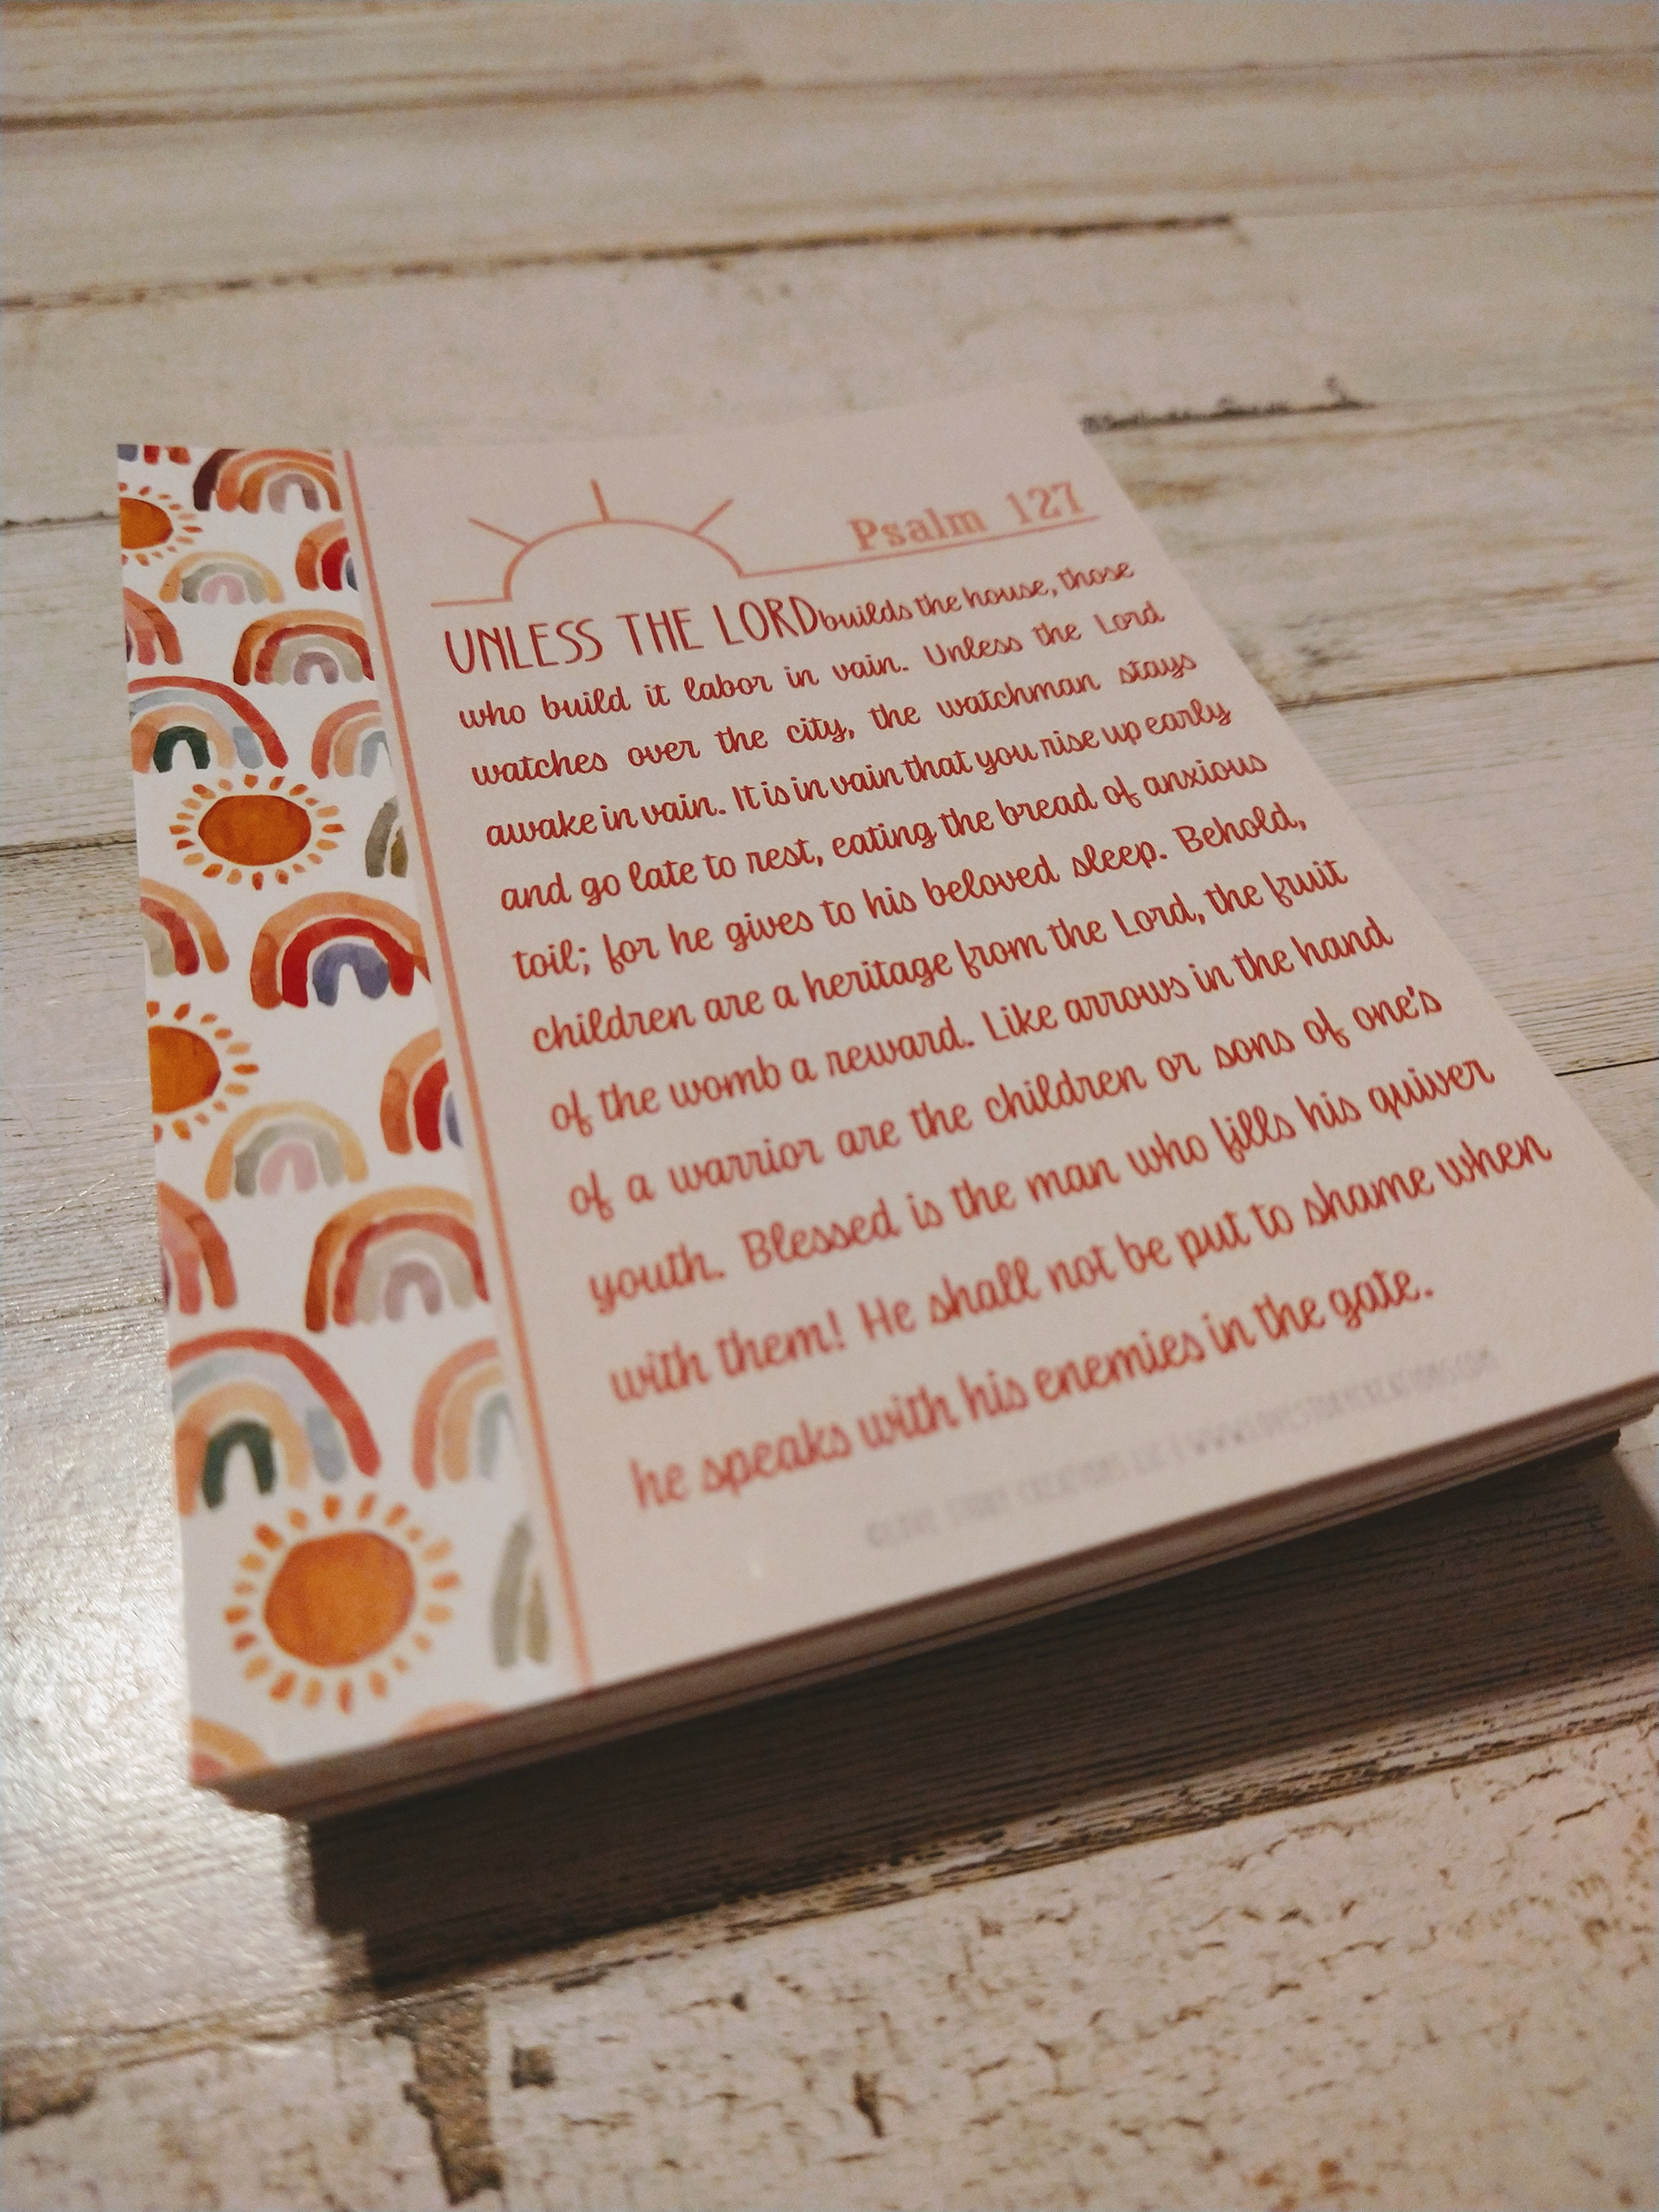 Psalm 127
UNLESS THE LORD builds the house, those
who build it labor in vain. Unless the Lord
watches over the city, the watchman stays
awake in vain. It is in vain that you rise up early
and go late to rest, eating the bread of anxious
toil; for he gives to his beloved sleep. Behold,
children are a heritage from the Lord, the fruit
of the womb a reward. Like arrows in the hand
of a warrior are the children or sons of one's
youth. Blessed is the man who fills his quiver
with them! He shall not be put to shame when
he speaks with his enemies in the gate.
©LOVE STORY CREATIONS LLC | WWW.LOVESTORYCREATIONS.COM